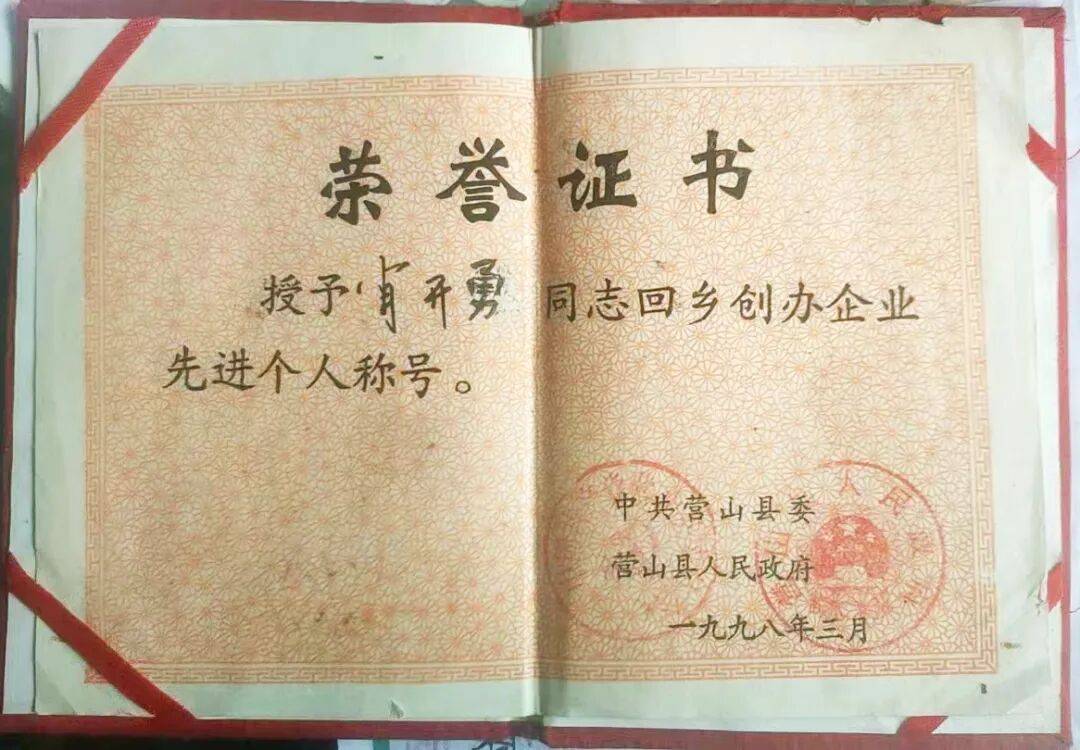 荣誉证书
授予肖开勇同志回乡创办企业
先进个人称号。
中共营山县委
营山县人民政府
一九九八年三月